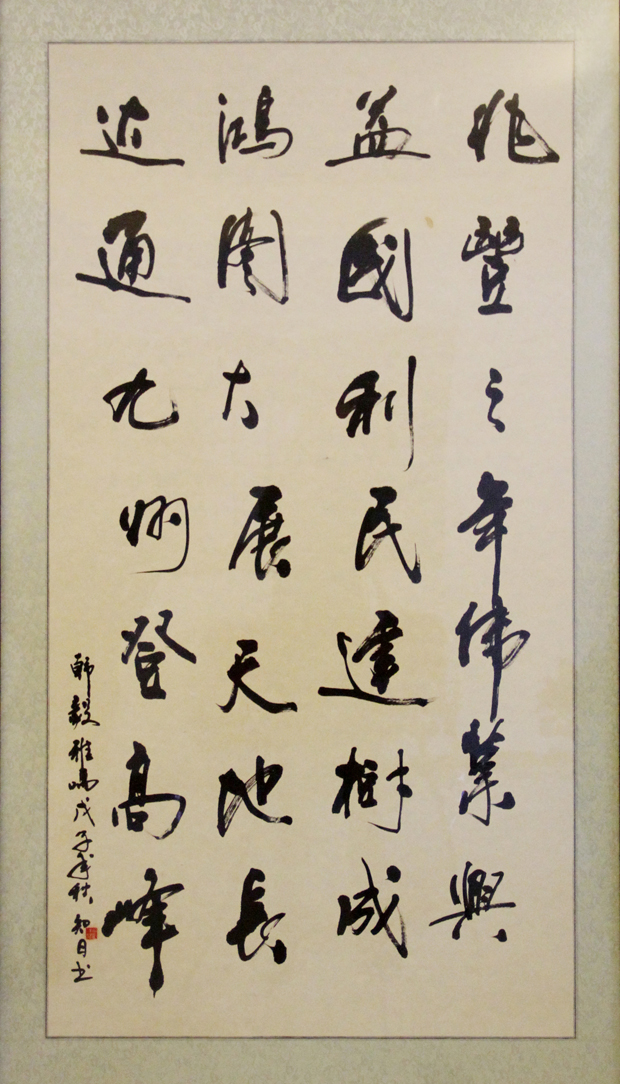 兆豐之年偉業興
益國利民達樹成
鴻圖大展天地長
近通九州登高峰
韩毅雅嘱戊子年秋知日书